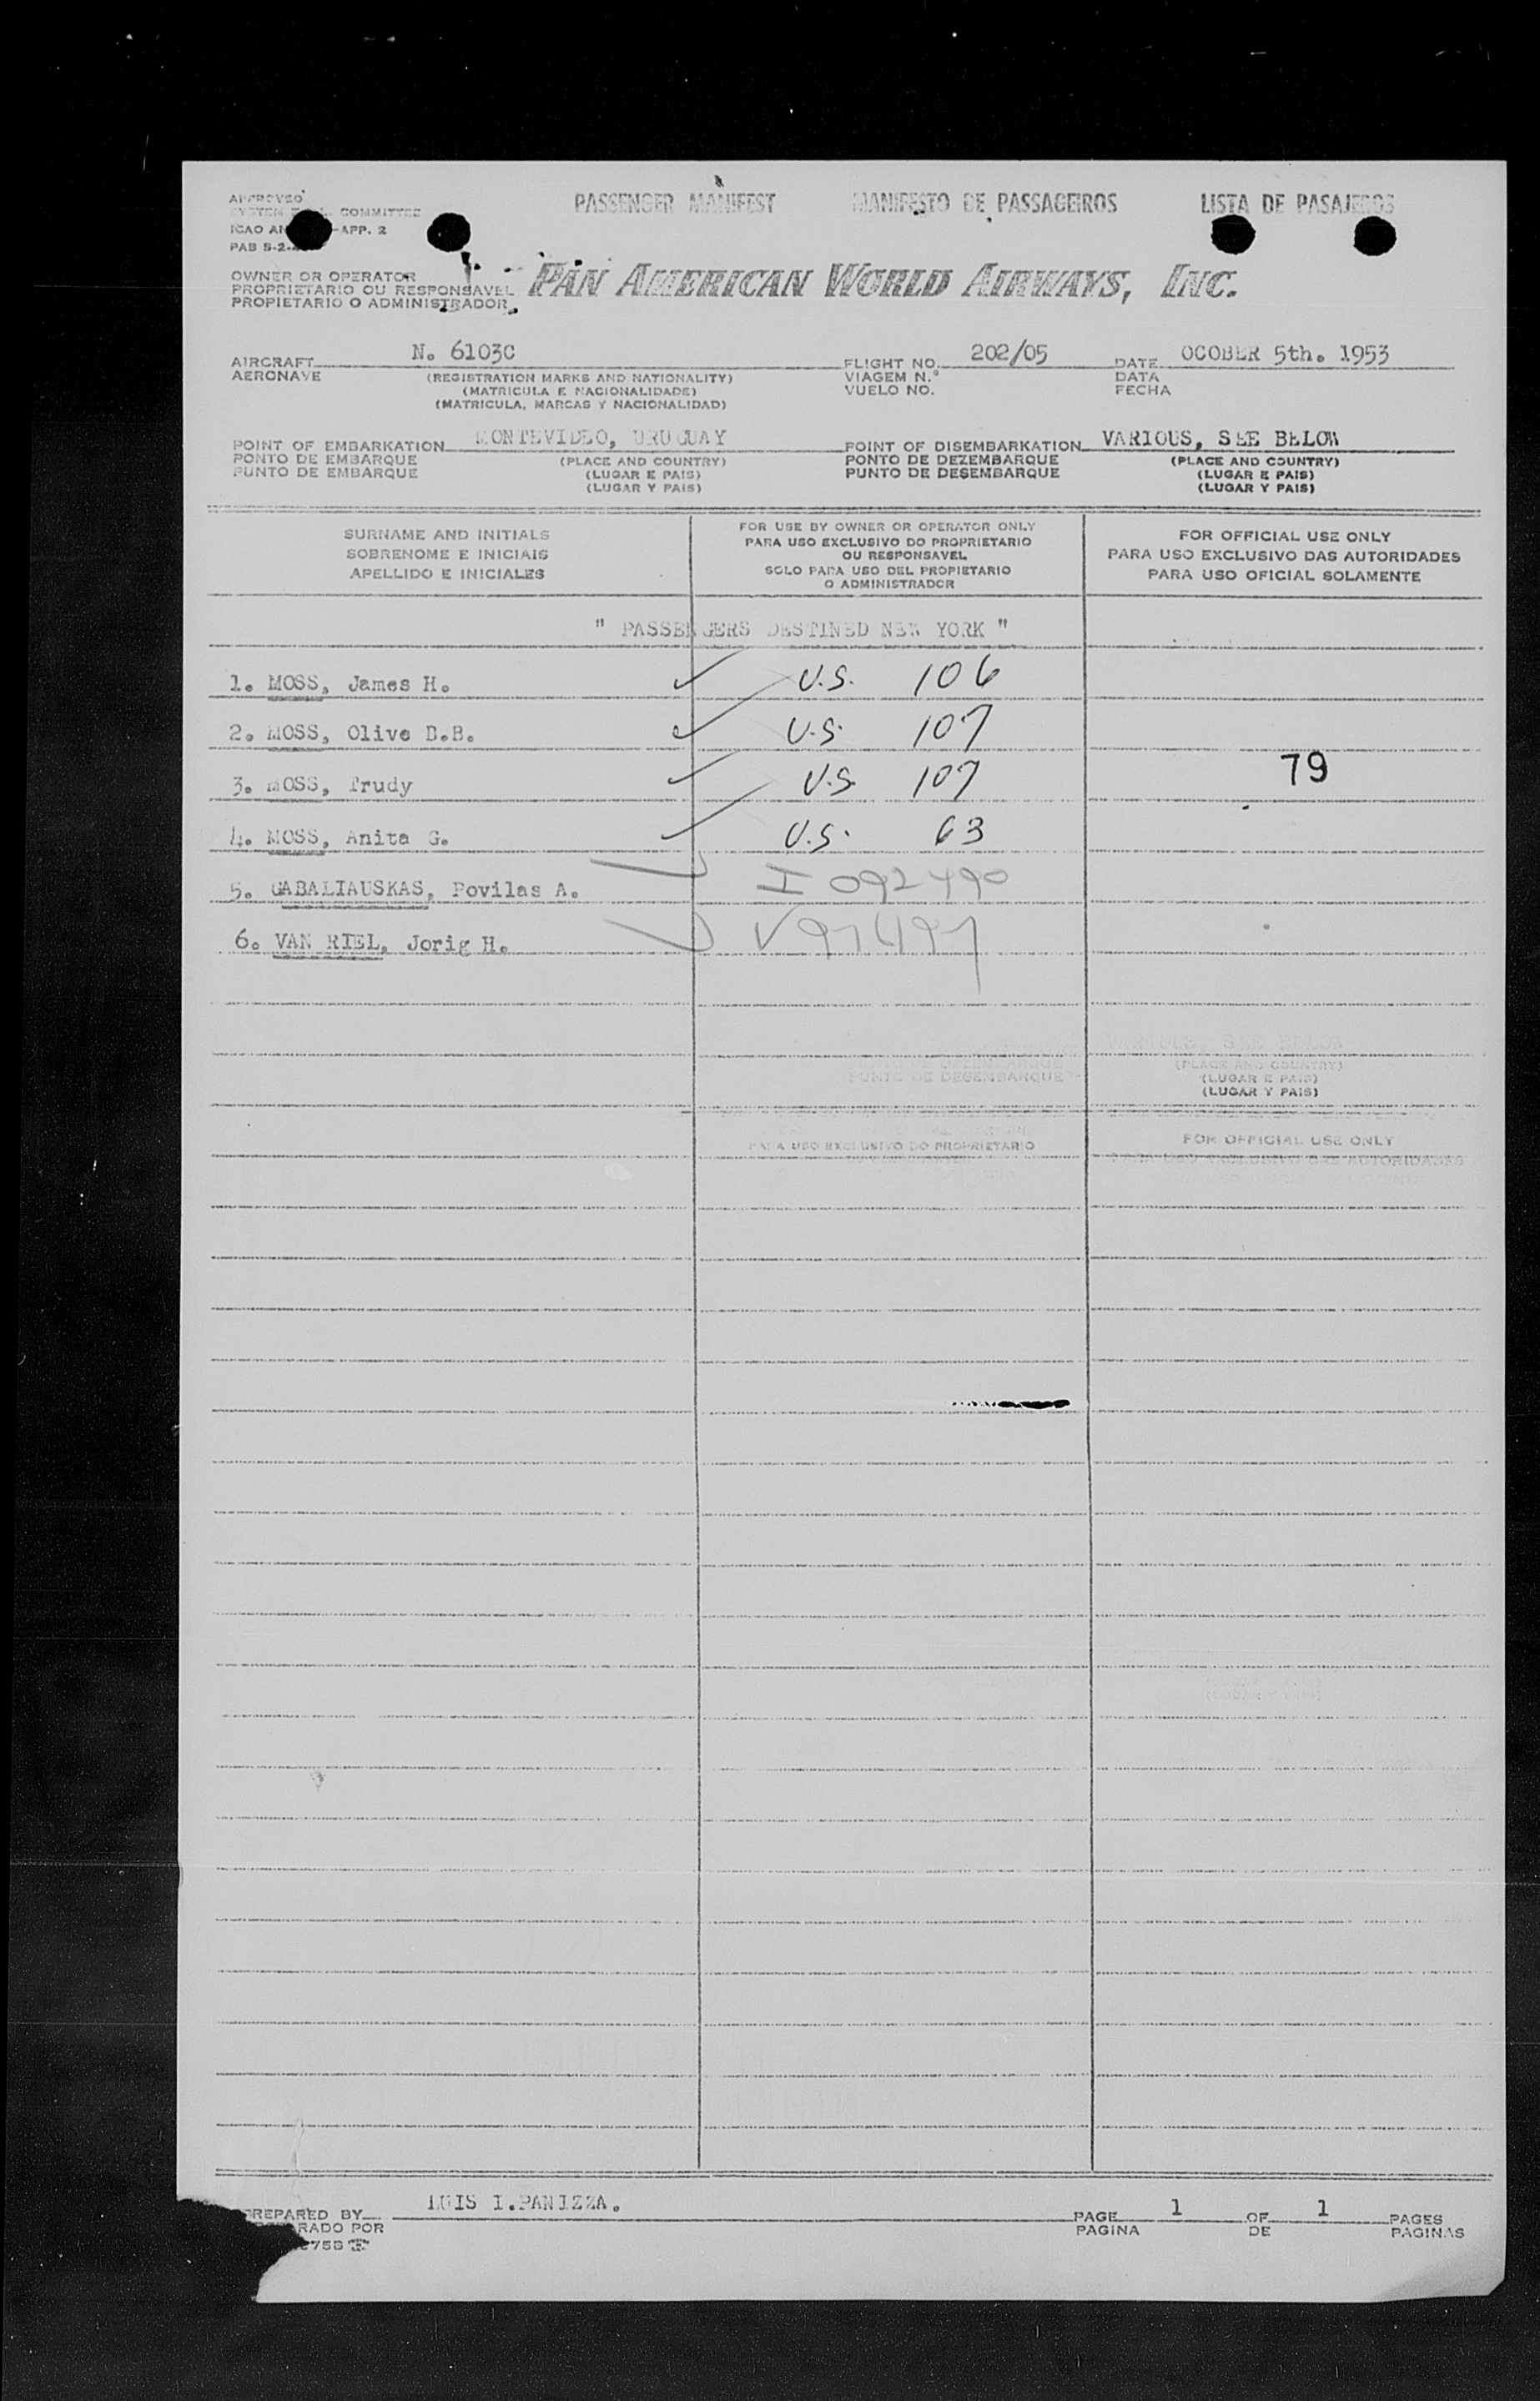 PASSENGER MANIFEST MANIFESTO DE PASSAGEIROS LISTA DE PASAJEROS
APPROVED
SYSTEM COMMITTEE
ICAO AN APP. 2
PAB S-2-
OWNER OR OPERATOR
PROPRIETARIO OU RESPONSAVEL
PROPIETARIO O ADMINISTRADOR
PAN AMERICAN WORLD AIRWAYS, INC.
AIRCRAFT N. 6103C FLIGHT NO. 202/05 DATE OCOBER 5th. 1953
AERONAVE (REGISTRATION MARKS AND NATIONALITY) VIAGEM N.º DATA
(MATRICULA E NACIONALIDADE) VUELO NO. FECHA
(MATRICULA, MARCAS Y NACIONALIDAD)
POINT OF EMBARKATION MONTEVIDEO, URUGUAY POINT OF DISEMBARKATION VARIOUS, SEE BELOW
PONTO DE EMBARQUE (PLACE AND COUNTRY) PONTO DE DEZEMBARQUE (PLACE AND COUNTRY)
PUNTO DE EMBARQUE (LUGAR E PAIS) PUNTO DE DESEMBARQUE (LUGAR E PAIS)
(LUGAR Y PAIS) (LUGAR Y PAIS)
SURNAME AND INITIALS
SOBRENOME E INICIAIS
APELLIDO E INICIALES
FOR USE BY OWNER OR OPERATOR ONLY
PARA USO EXCLUSIVO DO PROPRIETARIO
OU RESPONSAVEL
SOLO PARA USO DEL PROPIETARIO
O ADMINISTRADOR
FOR OFFICIAL USE ONLY
PARA USO EXCLUSIVO DAS AUTORIDADES
PARA USO OFICIAL SOLAMENTE
" PASSENGERS DESTINED NEW YORK "
1. MOSS, James H. U.S. 106
2. MOSS, Olive D.B. U.S. 107
3. MOSS, Trudy U.S. 107
79
4. MOSS, Anita G. U.S. 63
5. GABALIAUSKAS, Povilas A. I 092490
6. VAN RIEL, Jorig H. V97497
VARIOUS, SEE BELOW
(PLACE AND COUNTRY)
PUNTO DE DESEMBARQUE (LUGAR E PAIS)
(LUGAR Y PAIS)
PARA USO EXCLUSIVO DO PROPRIETARIO FOR OFFICIAL USE ONLY
PARA USO EXCLUSIVO DAS AUTORIDADES
PREPARED BY LUIS I.PANIZZA. PAGE 1 OF 1 PAGES
RADO POR PAGINA DE PAGINAS